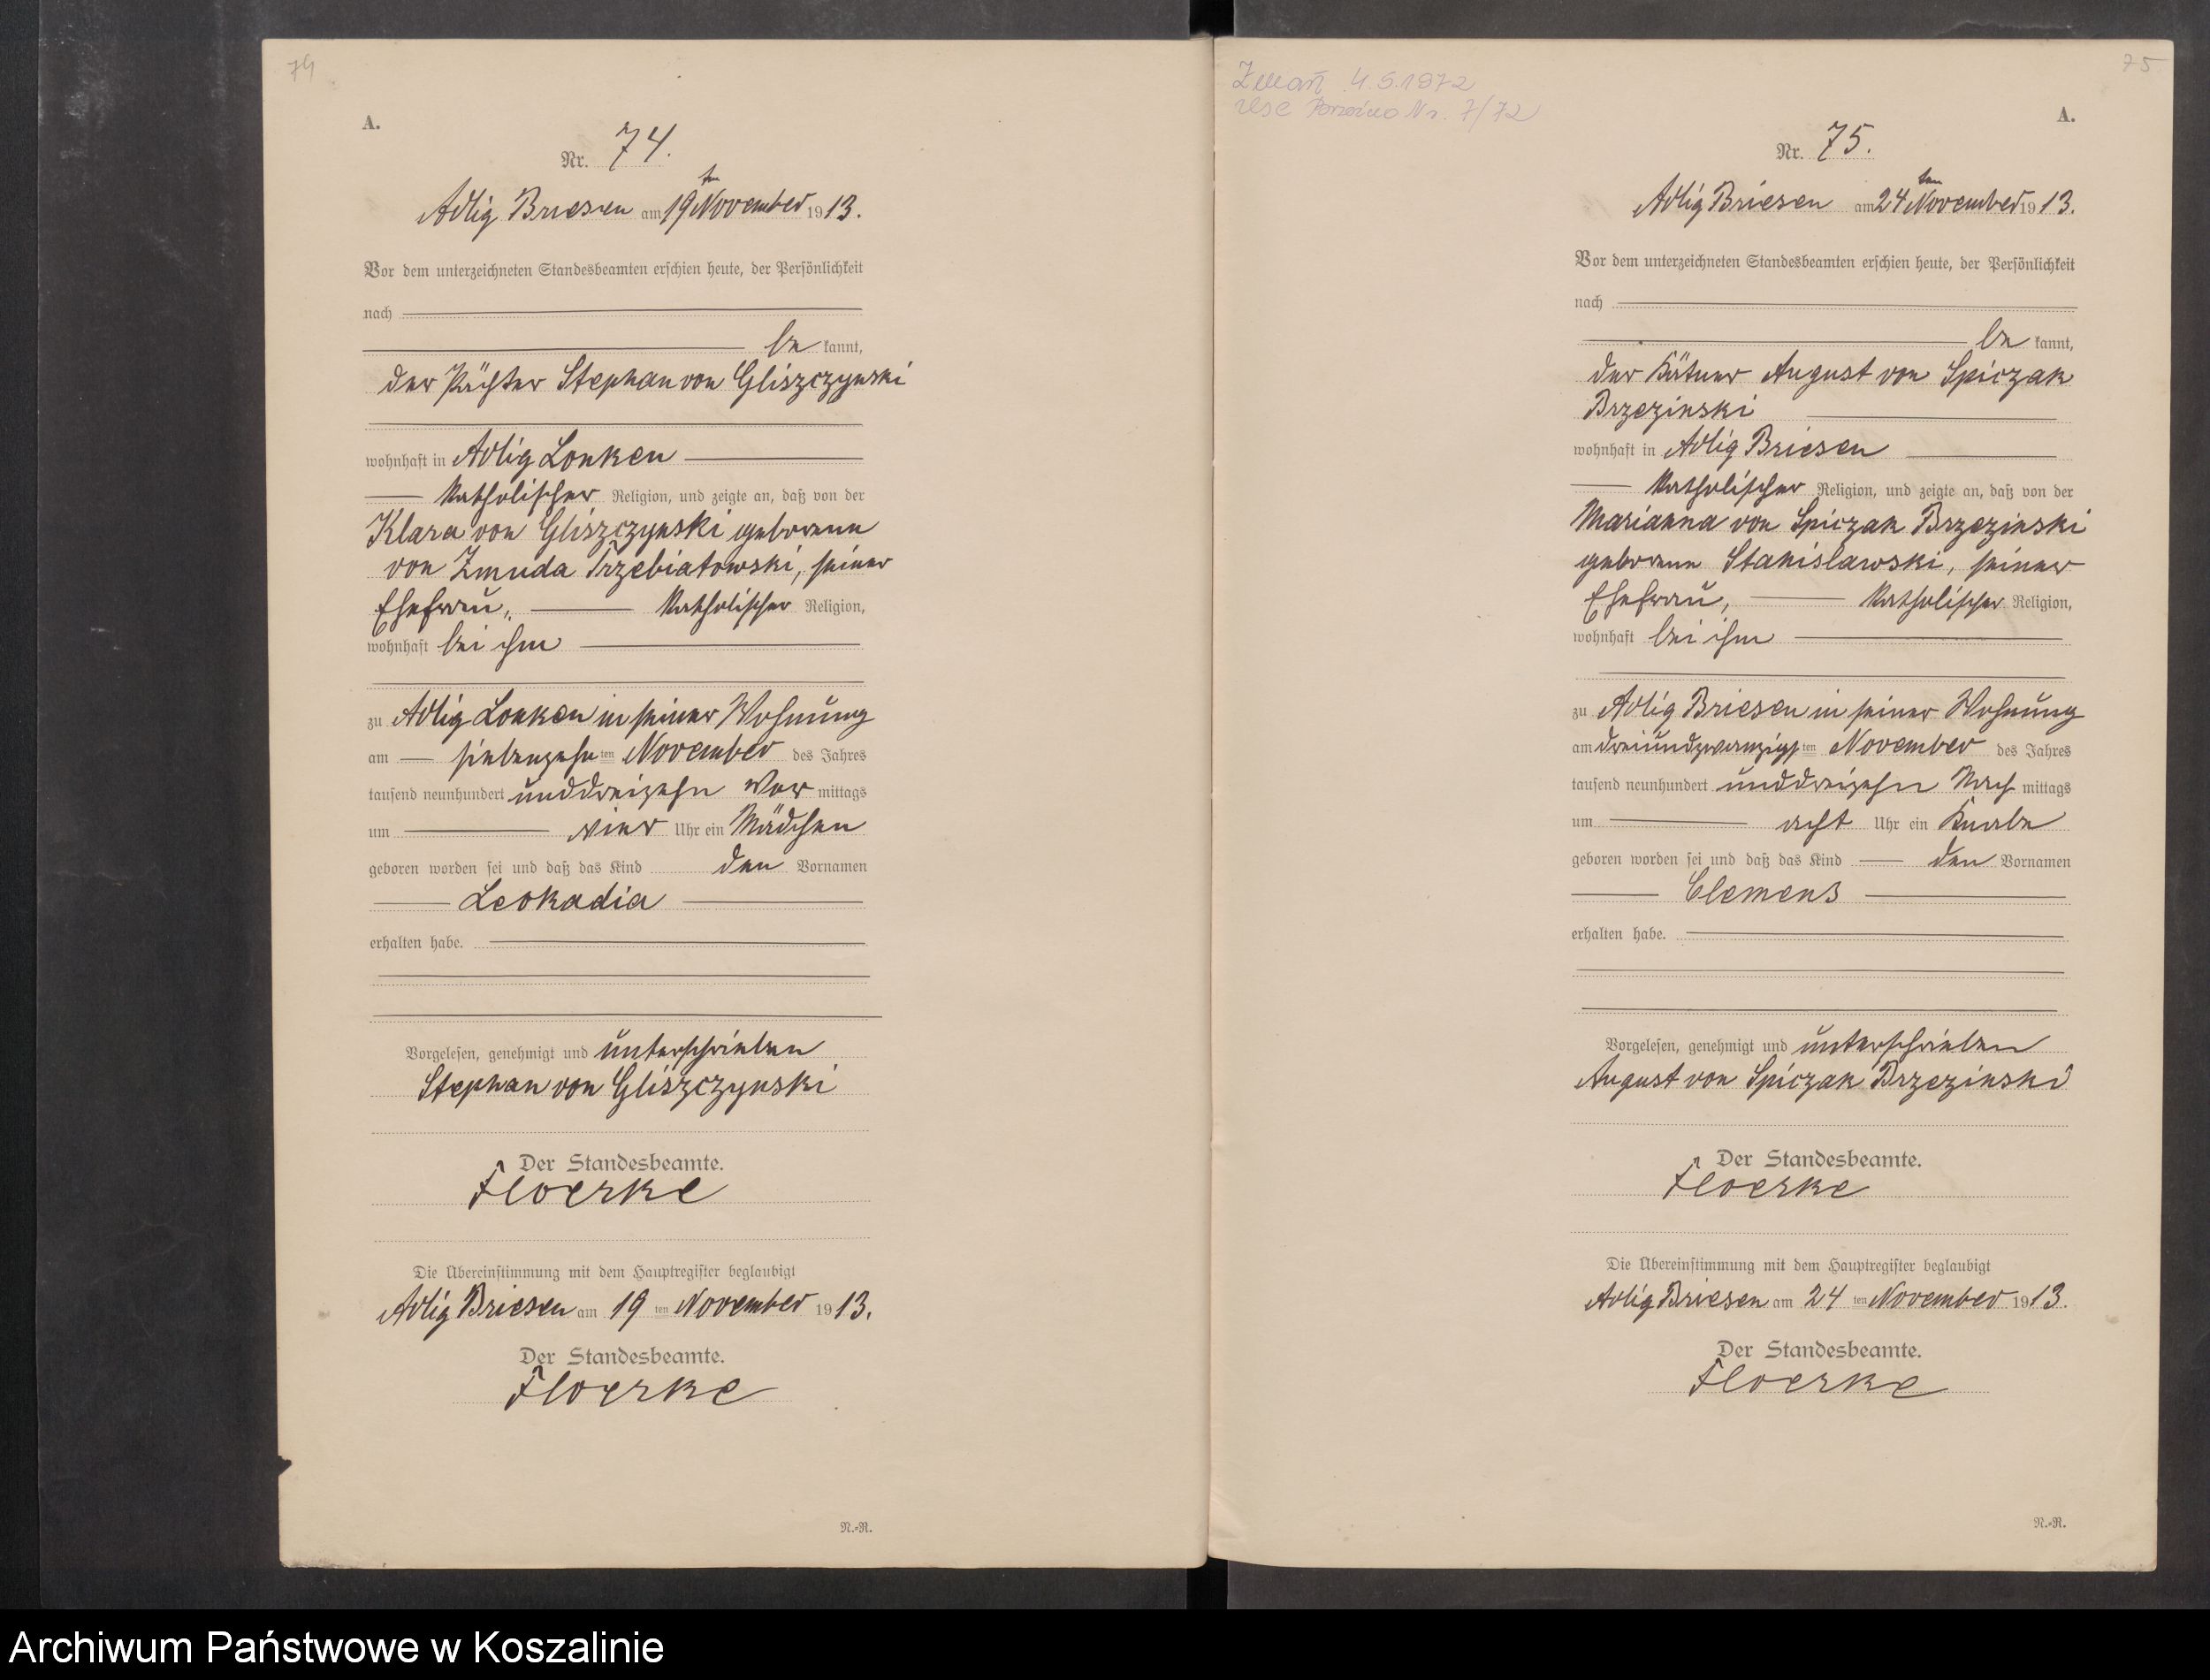 74
A.
Nr. 74.
Adlig Briesen am 19ten November 1913.
Vor dem unterzeichneten Standesbeamten erschien heute, der Persönlichkeit
nach
be kannt,
der Pächter Stephan von Gliszczynski
wohnhaft in Adlig Lonken
katholischer Religion, und zeigte an, daß von der
Klara von Gliszczynski geborene
von Zmuda Trzebiatowski, seiner
Ehefrau, katholischer Religion,
wohnhaft bei ihm
zu Adlig Lonken in seiner Wohnung
am siebenzehnten November des Jahres
tausend neunhundert unddreizehn Vor mittags
um vier Uhr ein Mädchen
geboren worden sei und daß das Kind den Vornamen
Leokadia
erhalten habe.
Vorgelesen, genehmigt und unterschrieben
Stephan von Gliszczynski
Der Standesbeamte.
Floerke
Die Übereinstimmung mit dem Hauptregister beglaubigt
Adlig Briesen am 19 ten November 1913.
Der Standesbeamte.
Floerke
N.-R.
75
4.5.1972
USC Nr. 7/72
A.
Nr. 75.
Adlig Briesen am 24ten November 1913.
Vor dem unterzeichneten Standesbeamten erschien heute, der Persönlichkeit
nach
be kannt,
der Kätner August von Spiczak
Brzezinski
wohnhaft in Adlig Briesen
katholischer Religion, und zeigte an, daß von der
Marianna von Spiczak Brzezinski
geborene Stanislawski, seiner
Ehefrau, katholischer Religion,
wohnhaft bei ihm
zu Adlig Briesen in seiner Wohnung
am dreiundzwanzigsten November des Jahres
tausend neunhundert unddreizehn Nach mittags
um acht Uhr ein Knabe
geboren worden sei und daß das Kind den Vornamen
Clemens
erhalten habe.
Vorgelesen, genehmigt und unterschrieben
August von Spiczak Brzezinski
Der Standesbeamte.
Floerke
Die Übereinstimmung mit dem Hauptregister beglaubigt
Adlig Briesen am 24 ten November 1913.
Der Standesbeamte.
Floerke
N.-R.
Archiwum Państwowe w Koszalinie